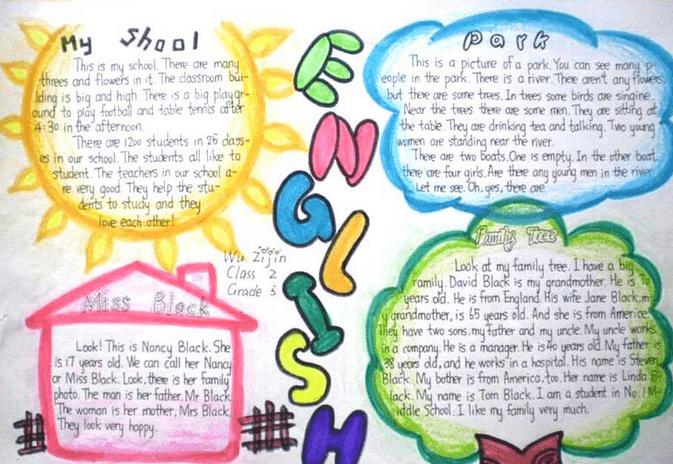 My shool
This is my school. There are many
threes and flowers in it. The classroom bui-
lding is big and high. There is a big playgr-
ound to play football and table tennis after
4:30 in the afternoon.
There are 1200 students in 25 class-
es in our school. The students all like to
student. The teachers in our school a-
re very good. They help the stu-
dents to study and they
love each other!
ENGLISH
park
This is a picture of a park. You can see many p-
eople in the park. There is a river. There aren't any flowers,
but there are some trees. In trees some birds are singine.
Near the trees there are some men. They are sitting at
the table. They are drinking tea and talking. Two young
women are standing near the river.
There are two boats. One is empty. In the other boat
there are four girls. Are there any young men in the river
Let me see. Oh, yes, there are
Wu Zijin
Class 2
Grade 3
Miss Black
Look! This is Nancy Black. She
is 17 years old. We can call her Nancy
or Miss Black. Look, there is her family
photo. The man is her father, Mr Black
The woman is her mother, Mrs Black.
They look very happy.
Family Tree
Look at my family tree. I have a big
family. David Black is my grandmother. He is
years old. He is from England. His wife Jane Black, m
y grandmother, is 65 years old. And she is from America.
They have two sons, my father and my uncle. My uncle works
in a company. He is a manager. He is 40 years old. My father is
38 years old, and he works in a hospital. His name is Steven
Black. My bother is from America, too. Her name is Linda B
lack. My name is Tom Black. I am a student in No. 1 M-
iddle School. I like my family very much.